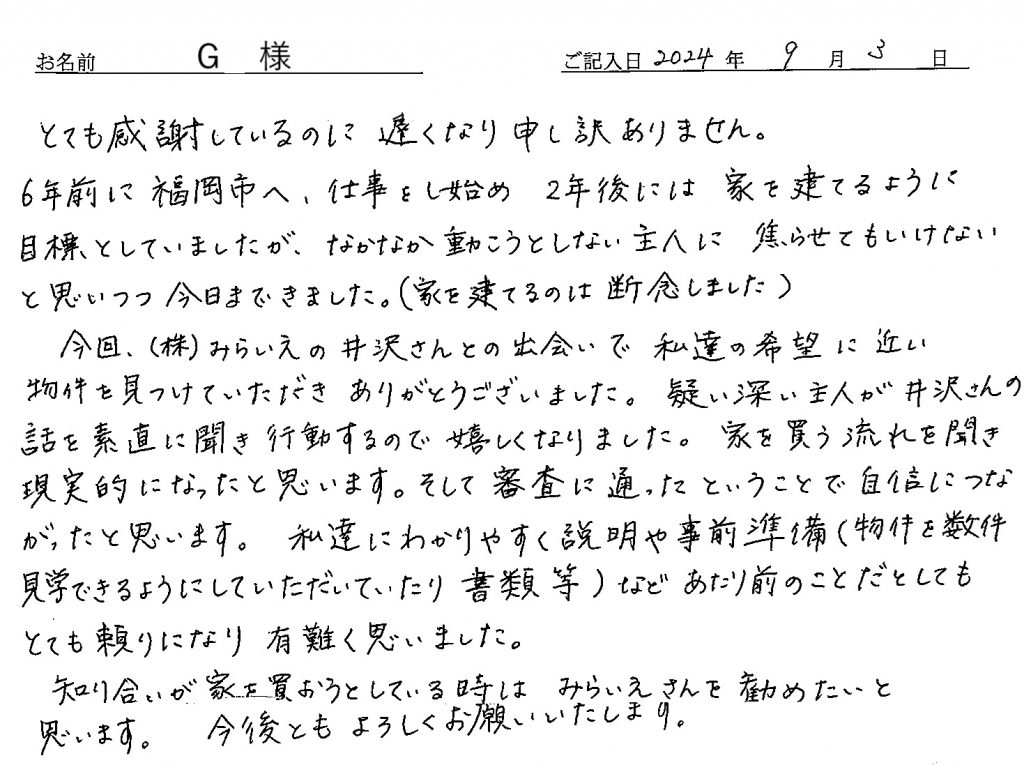 お名前 G 様 ご記入日 2024 年 9 月 3 日
とても感謝しているのに 遅くなり 申し訳ありません。
6年前に 福岡市へ、仕事をし始め 2年後には 家を建てるように
目標としていましたが、なかなか動こうとしない主人に 焦らせてもいけない
と思いつつ 今日まできました。(家を建てるのは 断念しました)
今回、(株)みらいえの 井沢さんとの出会いで 私達の希望に近い
物件を見つけていただき ありがとうございました。疑い深い主人が井沢さんの
話を素直に聞き 行動するので 嬉しくなりました。 家を買う流れを聞き
現実的になったと思います。そして 審査に通ったということで 自信につな
がったと思います。 私達にわかりやすく説明や事前準備(物件を数件
見学できるようにしていただいていたり 書類等)など あたり前のことだとしても
とても頼りになり 有難く思いました。
知り合いが家を買おうとしている時は みらいえさんを 勧めたいと
思います。 今後とも よろしくお願いいたします。